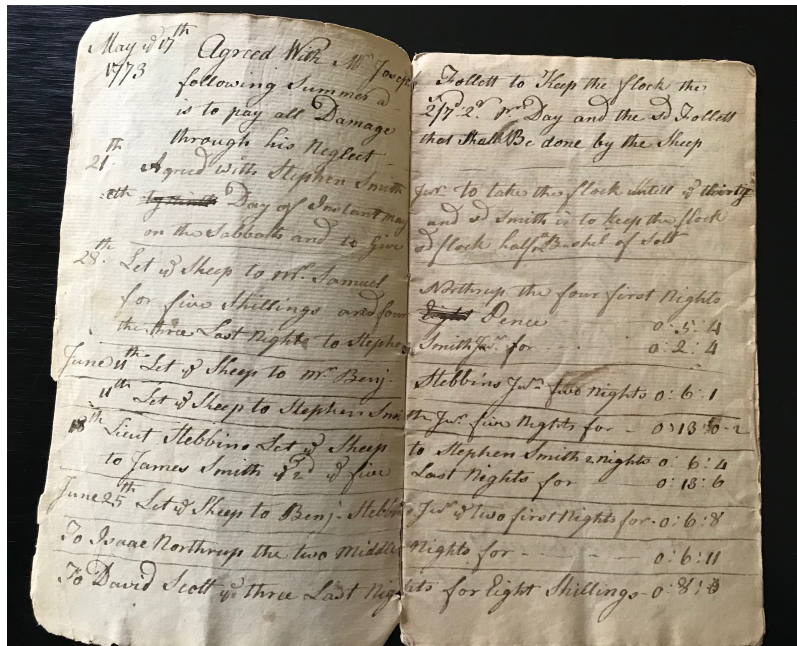 May ye 17th Agreed With Mr. Joseph Follett to Keep the flock the
1773 following Summer a 2/7d:2qr pr Day and the sd Follett
is to pay all Damage that Shall Be done by the Sheep
through his Neglect
21th Agreed with Stephen Smith Junr to take the flock untill ye thirty
eth by ninth Day of Instant may and sd Smith is to keep the flock
on the Sabbath and to Give sd flock half a Bushel of Solt
28th Let ye Sheep to mr. Samuel Northrup the four first Nights
for five Shillings and four Eight Pence 0:5:4
the three Last Nights to Stephen Smith Junr for 0:2:4
June 11th Let ye Sheep to mr Benj- Stebbins Junr two Nights 0:6:1
11th Let ye Sheep to Stephen Smith Junr five Nights for 0:13:0-2
18th Lieut Stebbins Let ye Sheep to Stephen Smith 2 Nights 0:6:4
to James Smith ye 2d ye five Last Nights for 0:13:6
June 25 Let ye Sheep to Benj- Stebbins Junr ye two first Nights for-0:6:8
To Isaac Northrup the two Middle Nights for - 0:6:11
To David Scott ye three Last Nights for Eight Shillings-0:8:0